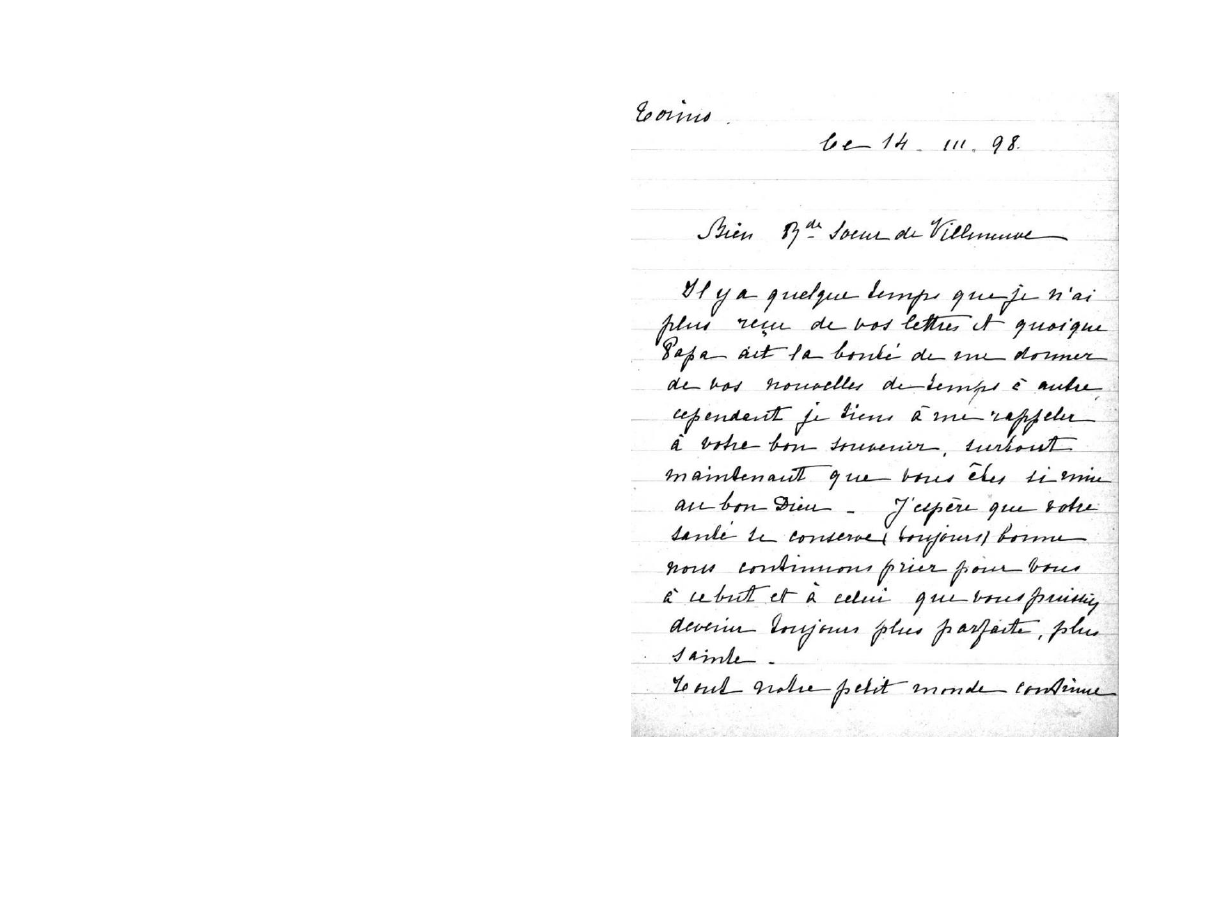 Torino.
Ce 14. III. 98.
Bien Rde Soeur de Villeneuve
Il y a quelque temps que je n'ai
plus reçu de vos lettres et quoique
Papa ait la bonté de me donner
de vos nouvelles de temps à autre,
cependant je tiens à me rappeler
à votre bon souvenir, surtout
maintenant que vous êtes si unie
au bon Dieu - J'espère que votre
santé se conserve (toujours) bonne
nous continuons prier pour vous
à ce but et à celui que vous puissiez
devenir toujours plus parfaite, plus
sainte -
Tout notre petit monde continue